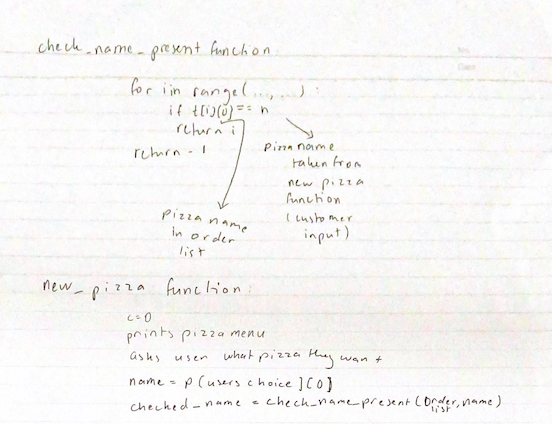 check_name_present function:
for i in range(..., ...):
if t[i][0] == n
return i
return - 1
pizza name
taken from
new pizza
function
(customer
input)
pizza name
in order
list
new_pizza function:
c=0
prints pizza menu
asks user what pizza they want
name = p[users choice][0]
checked_name = check_name_present(order list, name)